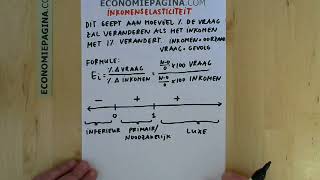 ECONOMIEPAGINA.COM
INKOMENSELASTICITEIT
DIT GEEFT AAN HOEVEEL % DE VRAAG
ZAL VERANDEREN ALS HET INKOMEN
MET 1% VERANDERT. INKOMEN=OORZAAK
VRAAG=GEVOLG
FORMULE:
Ei = % Δ VRAAG / % Δ INKOMEN = N-O/O x100 VRAAG / N-O/O x100 INKOMEN
- + +
0 1
INFERIEUR PRIMAIR/ LUXE
NOODZAKELIJK
ECONOMIEPAGINA.COM